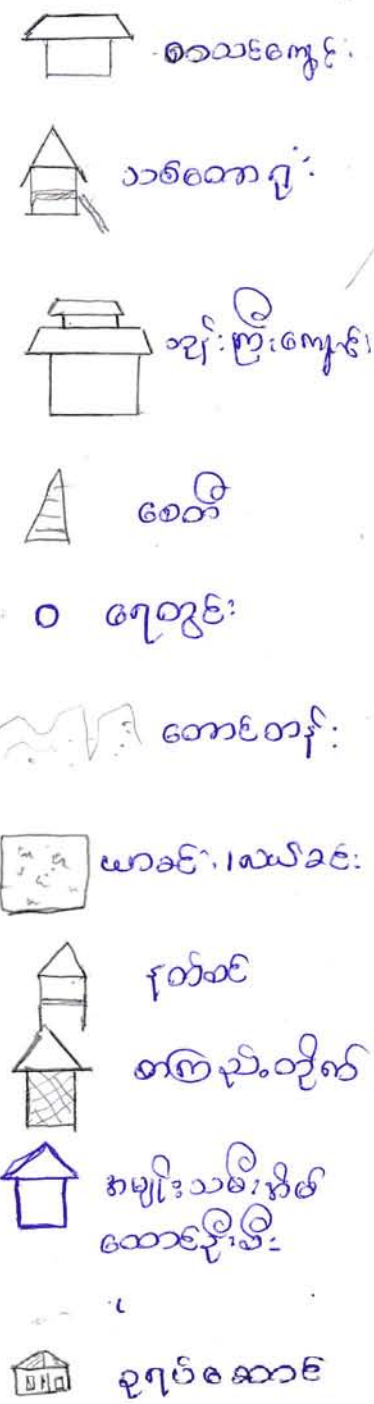 စာသင်ကျောင်း
သစ်တောရုံး
ဘုန်းကြီးကျောင်း
စေတီ
ရေတွင်း
တောင်တန်း
ယာခင်း၊လယ်ခင်း
နတ်စင်
စာကြည့်တိုက်
အမျိုးသမီးအိမ်
ထောင်ဦးစီး
ဥရုပ်ဆောင်